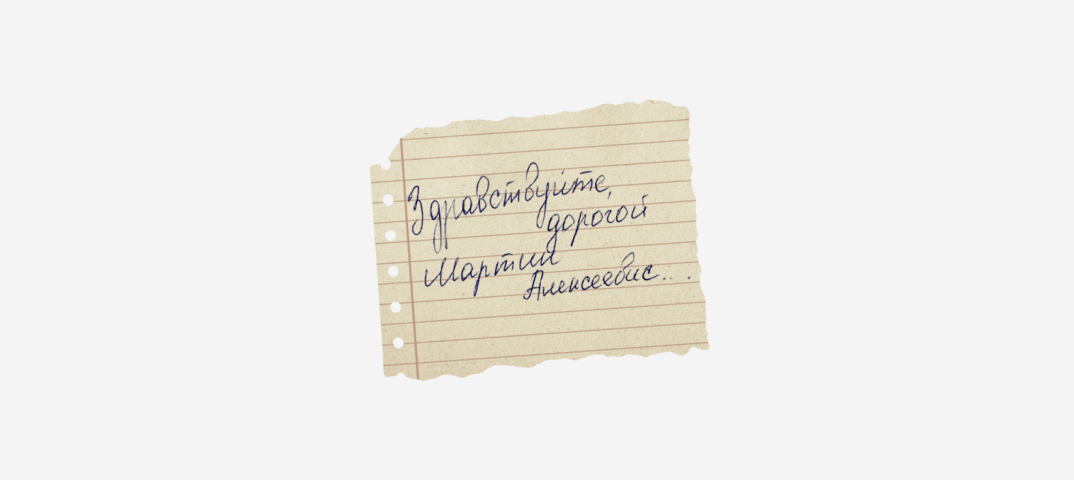 Здравствуйте,
дорогой
Мартин
Алексеевис...